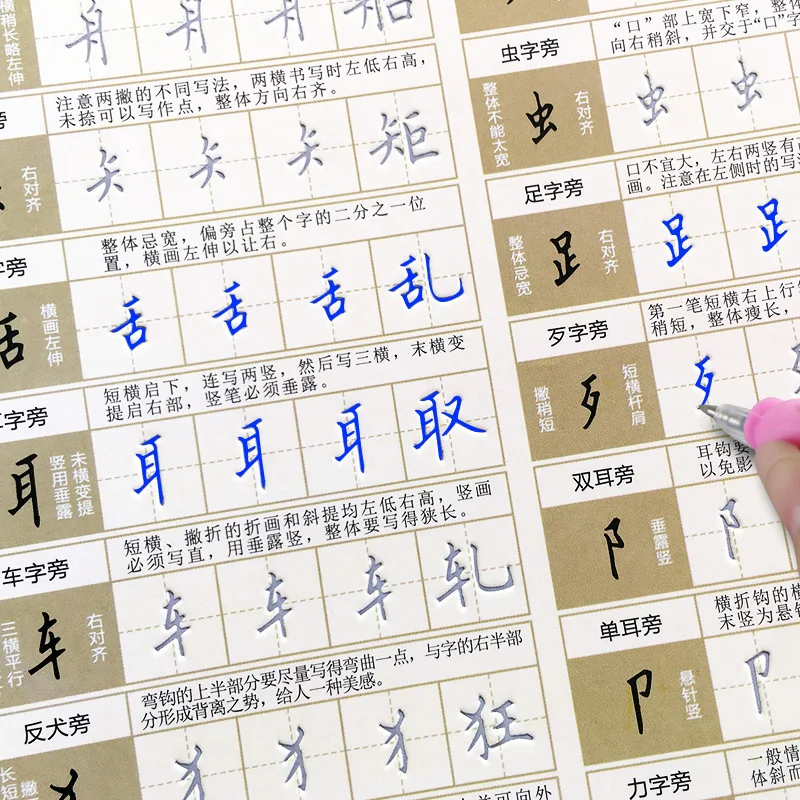 横稍长略左伸
注意两撇的不同写法，两横书写时左低右高，
未捺可以写作点，整体方向右齐。
右对齐
矢 矢 矢 矩
字旁
整体忌宽，偏旁占整个字的二分之一位
置，横画左伸以让右。
舌
横画左伸
舌 舌 舌 乱
字旁
短横启下，连写两竖，然后写三横，末横变
提启右部，竖笔必须垂露。
耳
末横变提
竖用垂露
耳 耳 耳 取
车字旁
短横、撇折的折画和斜提均左低右高，竖画
必须写直，用垂露竖，整体要写得狭长。
三横平行
车
右对齐
车 车 车 轧
反犬旁
弯钩的上半部分要尽量写得弯曲一点，与字的右半部
分形成背离之势，给人一种美感。
犭 犭 犭 狂
“口”部上宽下窄，整体
向右稍斜，并交于“口”字
虫字旁
整体不能太宽
虫
右对齐
虫 虫
足字旁
口不宜大，左右两竖有
画。注意在左侧时的写法
整体忌宽
足
右对齐
足 足
歹字旁
第一笔短横右上行笔
稍短，整体瘦长，
撇稍短
歹
短横杆肩
歹
双耳旁
耳钩要
以免影
阝
垂露竖
阝
单耳旁
横折钩的横
末竖为悬针
卩
悬针竖
卩
力字旁
一般情
体斜而